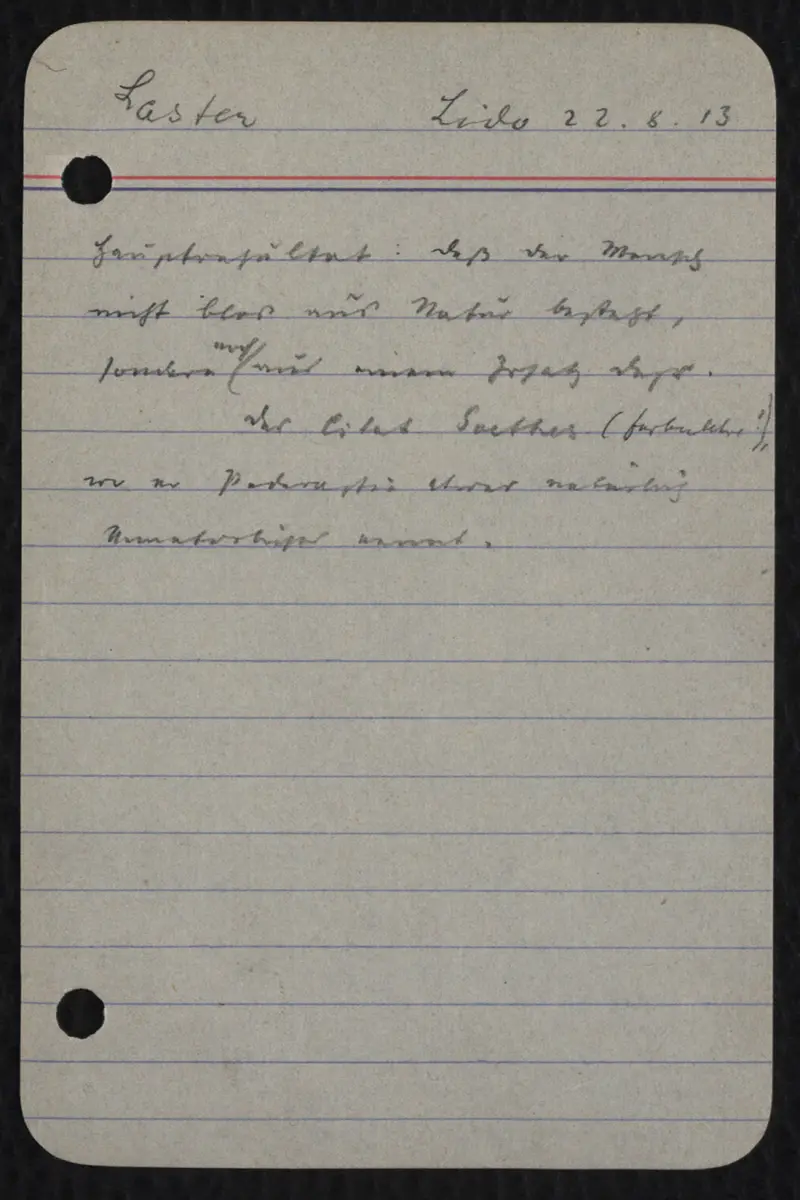 Laster Lido 22. 8. 13
Hauptresultat: daß der Mensch
nicht blos aus Natur besteht,
sondern noch aus einem Zusatz dazu.
Das Citat Goethes (Farbenlehre?),
wo er Paderastie etwas natürlich
Unnatürliches nennt.